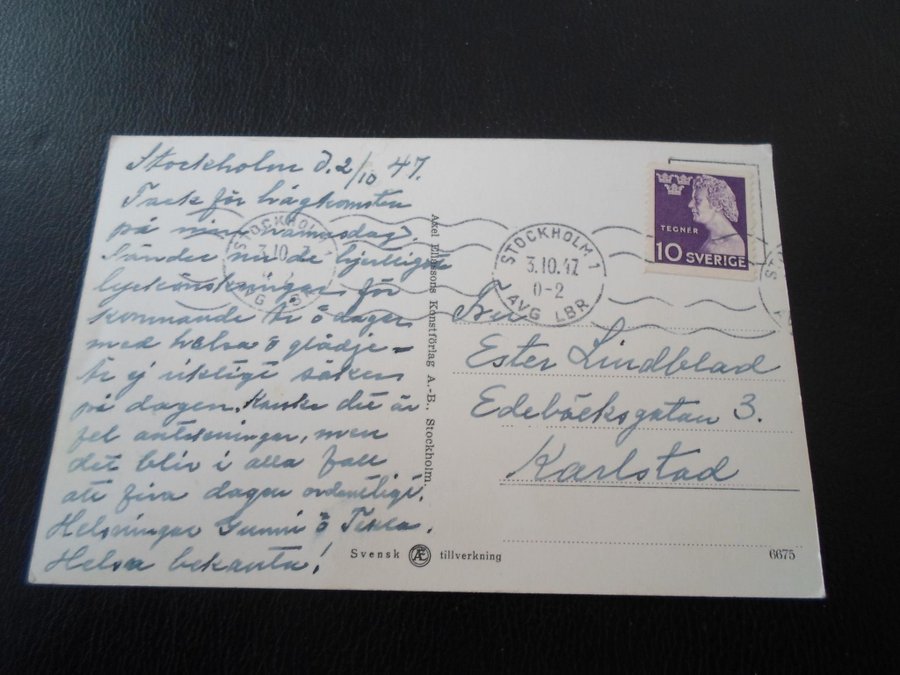 Stockholm d. 2/10 47.
Tack för hågkomsten
på min namnsdag.
Sänder nu de hjärtligaste
lyckönskningar för
kommande år o dagar
med hälsa o glädje –
Är ej riktigt säker
på dagen. Kanske det är
fel anteckningar, men
det blir i alla fall
att fira dagen ordentligt.
Hälsningar Gunni o
Helsa bekanta!
Axel Eliassons Konstförlag A.-B., Stockholm.
Svensk Æ tillverkning
6675
TEGNER
10 SVERIGE
STOCKHOLM 1
3.10.47
0-2
AVG LBR
STOCKHOLM 1
3.10.47
AVG LBR
Fru
Ester Lindblad
Edebäcksgatan 3.
Karlstad